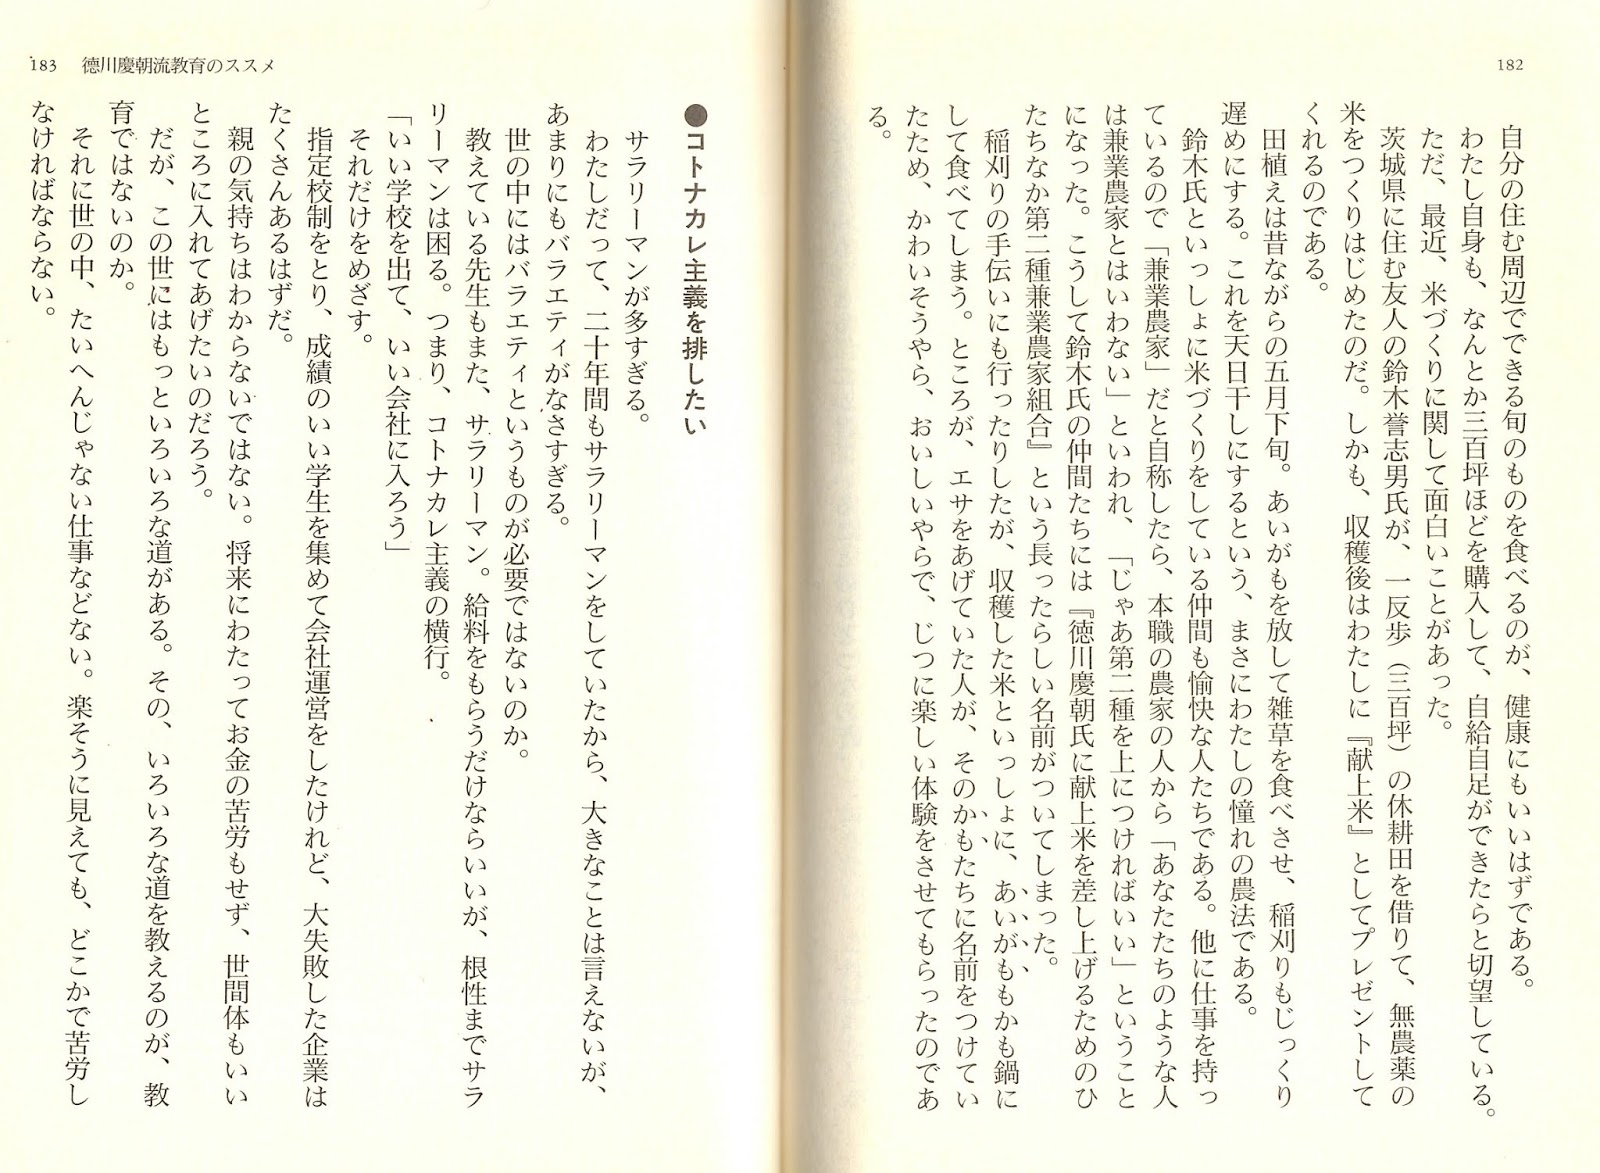 182
自分の住む周辺でできる旬のものを食べるのが、健康にもいいはずである。
わたし自身も、なんとか三百坪ほどを購入して、自給自足ができたらと切望している。
ただ、最近、米づくりに関して面白いことがあった。
茨城県に住む友人の鈴木誉志男氏が、一反歩（三百坪）の休耕田を借りて、無農薬の
米をつくりはじめたのだ。しかも、収穫後はわたしに『献上米』としてプレゼントして
くれるのである。
田植えは昔ながらの五月下旬。あいがもを放して雑草を食べさせ、稲刈りもじっくり
遅めにする。これを天日干しにするという、まさにわたしの憧れの農法である。
鈴木氏といっしょに米づくりをしている仲間も愉快な人たちである。他に仕事を持っ
ているので「兼業農家」だと自称したら、本職の農家の人から「あなたたちのような人
は兼業農家とはいわない」といわれ、「じゃあ第二種を上につければいい」ということ
になった。こうして鈴木氏の仲間たちには『徳川慶朝氏に献上米を差し上げるためのひ
たちなか第二種兼業農家組合』という長ったらしい名前がついてしまった。
稲刈りの手伝いにも行ったりしたが、収穫した米といっしょに、あいがももかも鍋に
して食べてしまう。ところが、エサをあげていた人が、そのかもたちに名前をつけてい
たため、かわいそうやら、おいしいやらで、じつに楽しい体験をさせてもらったのであ
る。
183 徳川慶朝流教育のススメ
●コトナカレ主義を排したい
サラリーマンが多すぎる。
わたしだって、二十年間もサラリーマンをしていたから、大きなことは言えないが、
あまりにもバラエティがなさすぎる。
世の中にはバラエティというものが必要ではないのか。
教えている先生もまた、サラリーマン。給料をもらうだけならいいが、根性までサラ
リーマンは困る。つまり、コトナカレ主義の横行。
「いい学校を出て、いい会社に入ろう」
それだけをめざす。
指定校制をとり、成績のいい学生を集めて会社運営をしたけれど、大失敗した企業は
たくさんあるはずだ。
親の気持ちはわからないではない。将来にわたってお金の苦労もせず、世間体もいい
ところに入れてあげたいのだろう。
だが、この世にはもっといろいろな道がある。その、いろいろな道を教えるのが、教
育ではないのか。
それに世の中、たいへんじゃない仕事などない。楽そうに見えても、どこかで苦労し
なければならない。